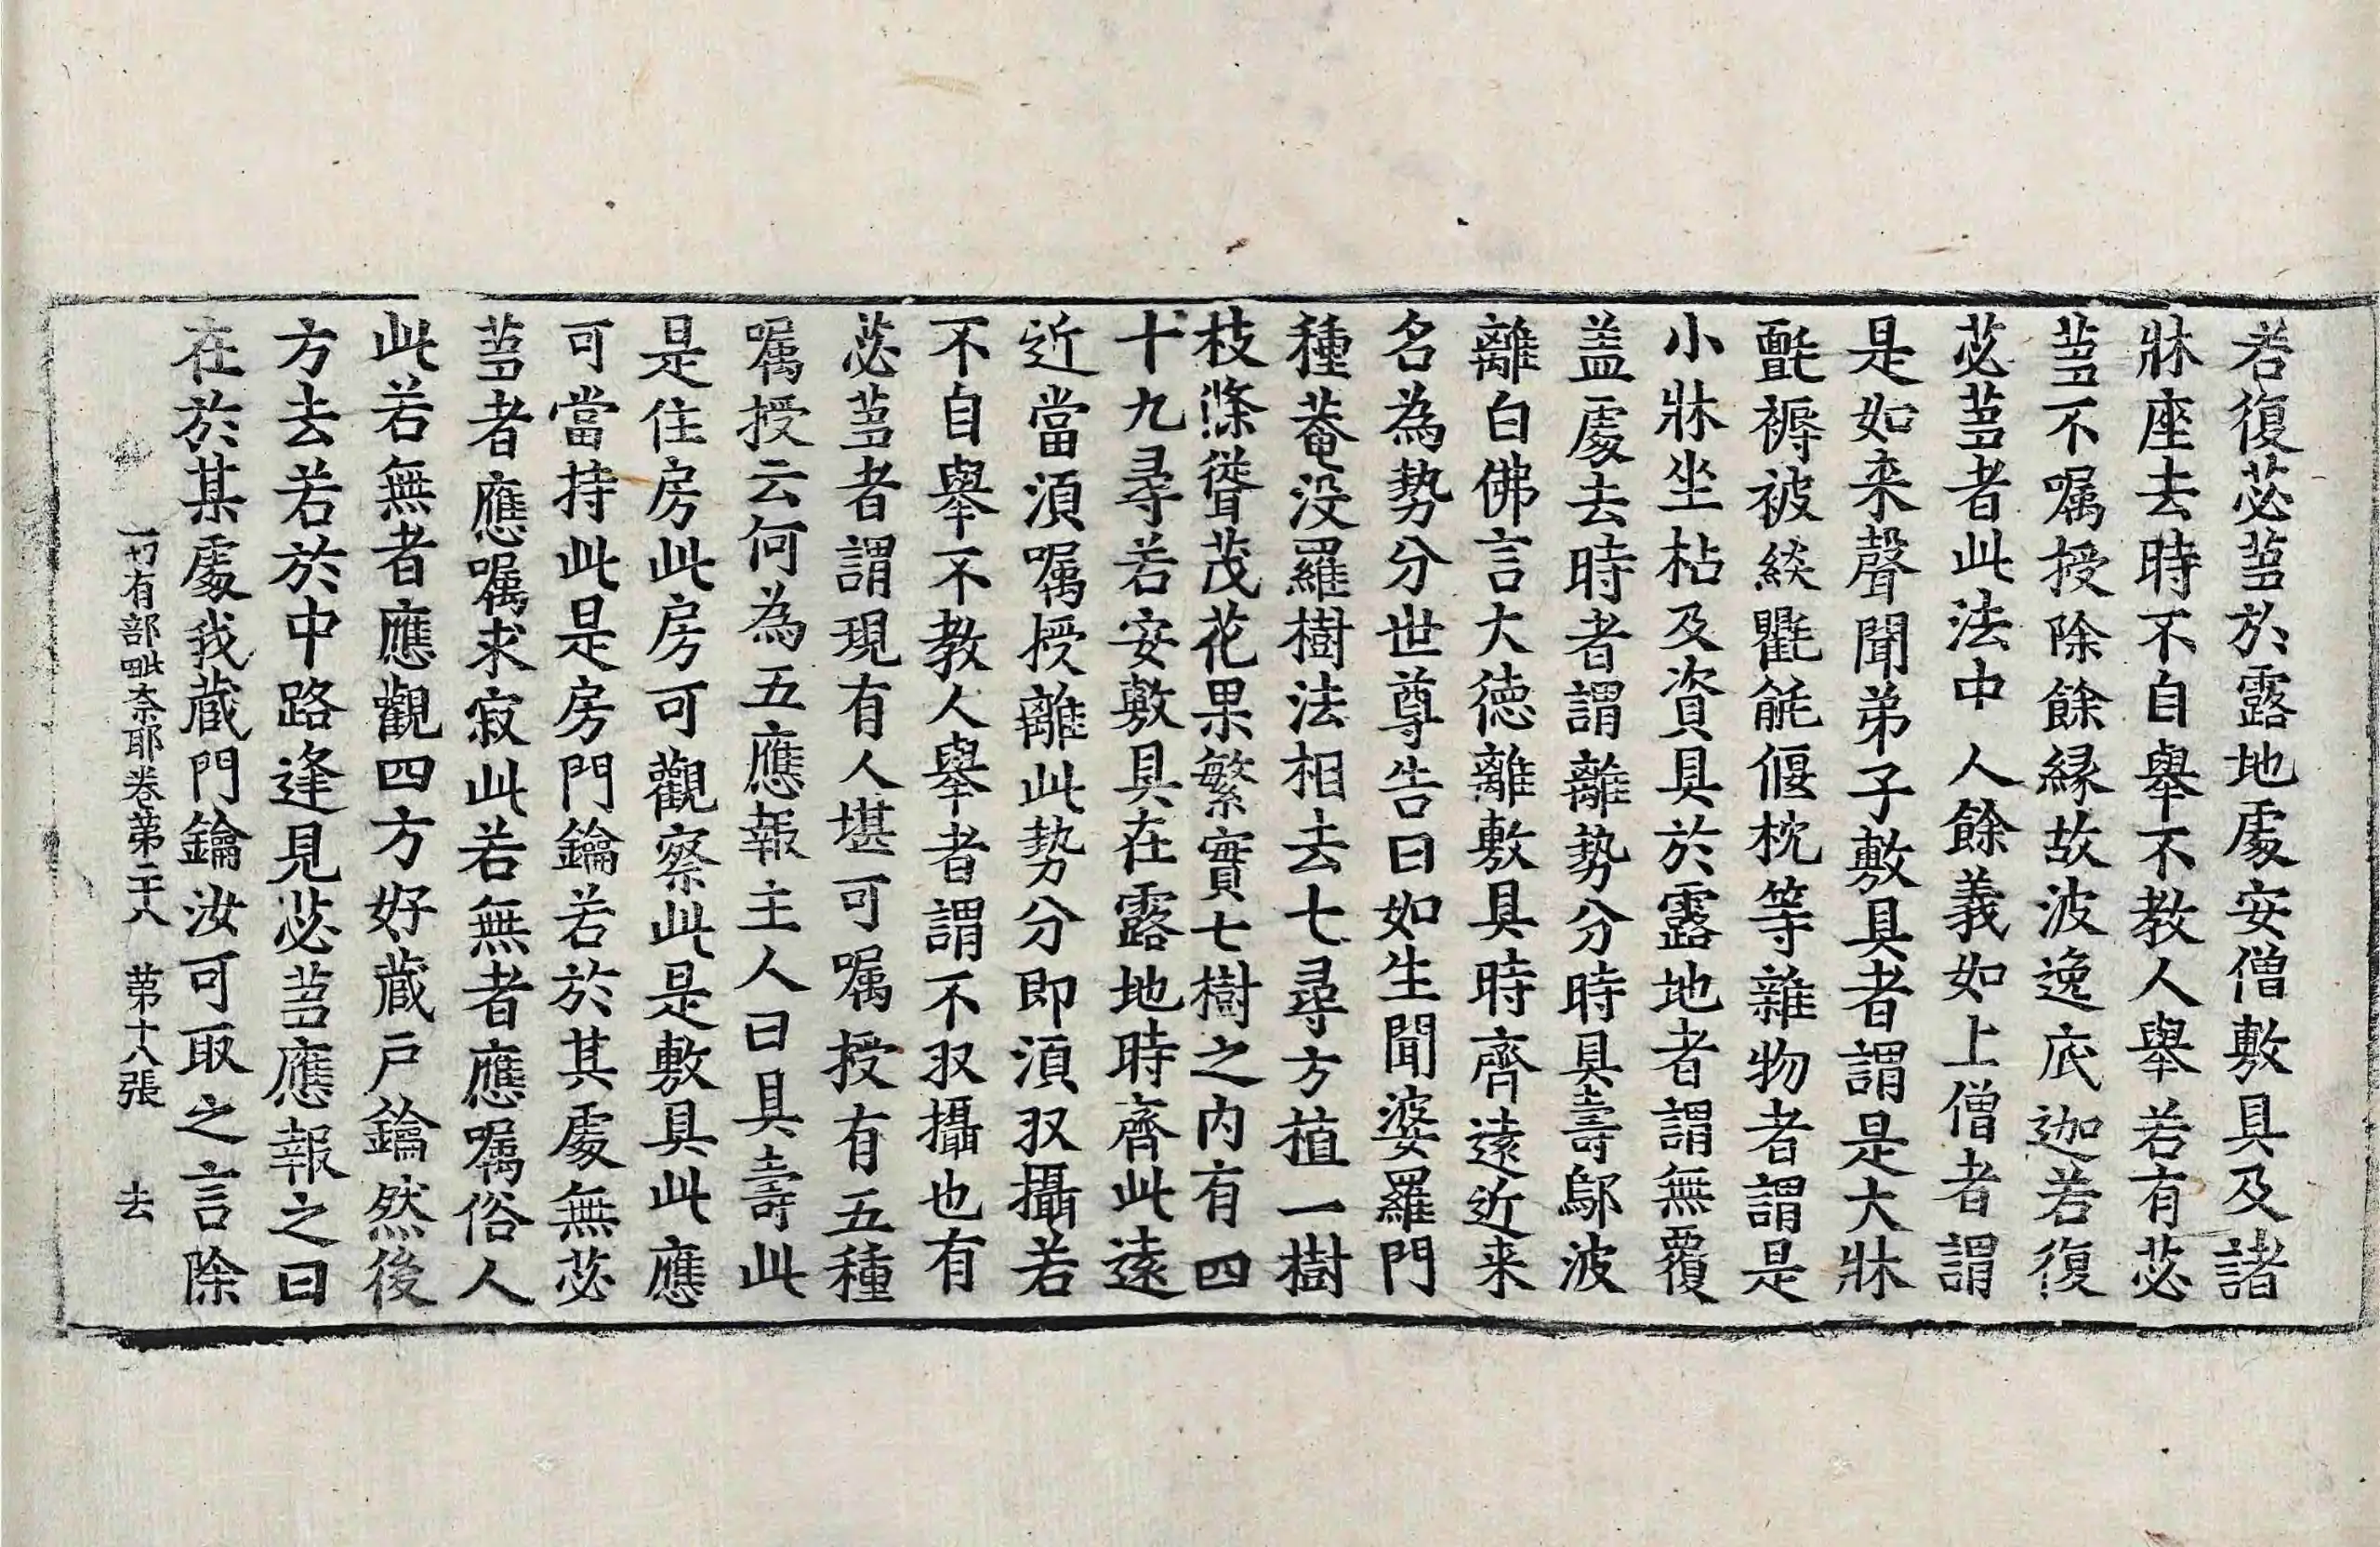 若復苾蒭於露地處安僧敷具及諸
牀座去時不自舉不教人舉若有苾
蒭不囑授除餘縁故波逸底迦若復
苾蒭者此法中人餘義如上僧者謂
是如来聲聞弟子敷具者謂是大牀
氈褥被緂氍毹偃枕等雜物者謂是
小牀坐枯及資具於露地者謂無覆
盖處去時者謂離勢分時具壽鄔波
離白佛言大徳離敷具時齊遠近来
名為勢分世尊告曰如生聞婆羅門
種菴没羅樹法相去七尋方植一樹
枝條聳茂花果繁實七樹之内有四
十九尋若安敷具在露地時齊此遠
近當須囑授離此勢分即須収攝若
不自舉不教人舉者謂不収攝也有
苾蒭者謂現有人堪可囑授有五種
囑授云何為五應報主人曰具壽此
是住房此房可觀察此是敷具此應
可當持此是房門鑰若於其處無苾
蒭者應囑求寂此若無者應囑俗人
此若無者應觀四方好蔵戸鑰然後
方去若於中路逢見苾蒭應報之曰
在於某處我蔵門鑰汝可取之言除
一切有部毗奈耶卷苐二十八 苐十八張 去